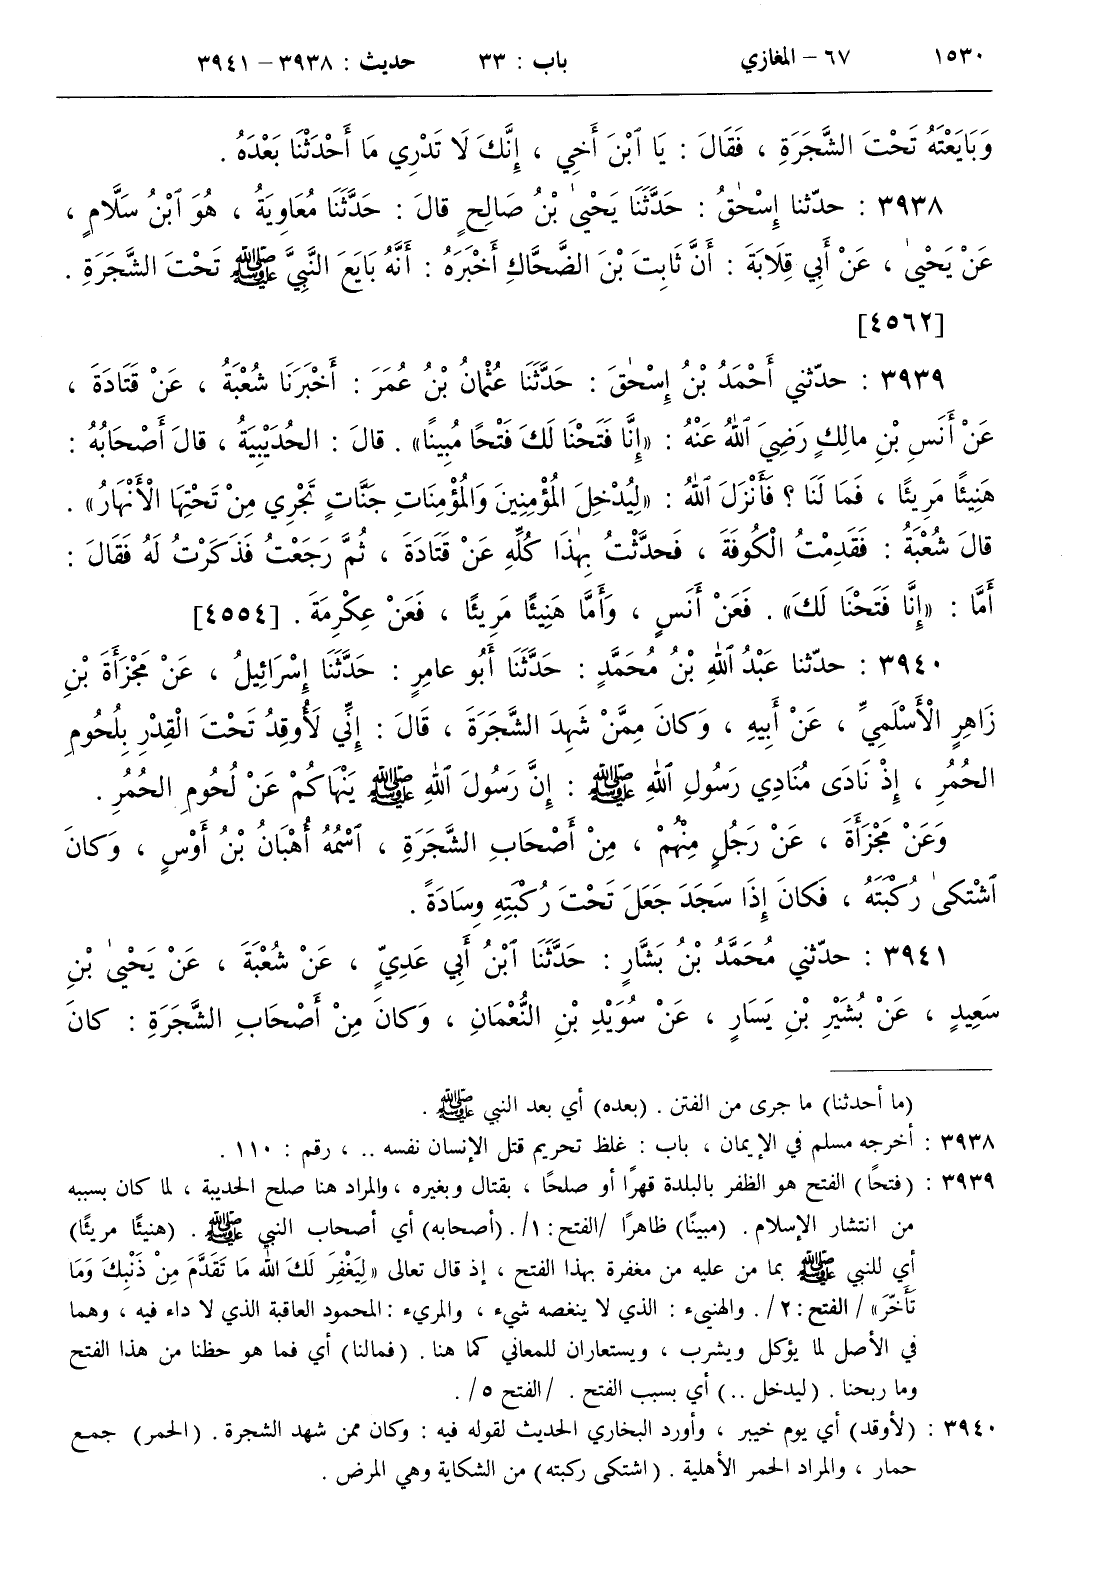 ١٥٣٠ ٦٧ – المغازي باب : ٣٣ حديث : ٣٩٣٨ – ٣٩٤١
وَبَايَعْتَهُ تَحْتَ الشَّجَرَةِ ، فَقَالَ : يَا ٱبْنَ أَخِي ، إِنَّكَ لَا تَدْرِي مَا أَحْدَثْنَا بَعْدَهُ .
٣٩٣٨ : حدّثنا إِسْحٰقُ : حَدَّثَنَا يَحْيىٰ بْنُ صَالِحٍ قالَ : حَدَّثَنَا مُعَاوِيَةُ ، هُوَ ٱبْنُ سَلَّامٍ ،
عَنْ يَحْيىٰ ، عَنْ أَبِي قِلَابَةَ : أَنَّ ثَابِتَ بْنَ الضَّحَّاكِ أَخْبَرَهُ : أَنَّهُ بَايَعَ النَّبِيَّ ﷺ تَحْتَ الشَّجَرَةِ .
[٤٥٦٢]
٣٩٣٩ : حدّثني أَحْمَدُ بْنُ إِسْحٰقَ : حَدَّثَنَا عُثْمانُ بْنُ عُمَرَ : أَخْبَرَنَا شُعْبَةُ ، عَنْ قَتَادَةَ ،
عَنْ أَنَسِ بْنِ مالِكٍ رَضِيَ ٱللهُ عَنْهُ : «إِنَّا فَتَحْنَا لَكَ فَتْحًا مُبِينًا» . قالَ : الحُدَيْبِيَةُ ، قالَ أَصْحَابُهُ :
هَنِيئًا مَرِيئًا ، فَمَا لَنَا ؟ فَأَنْزَلَ ٱللهُ : «لِيُدْخِلَ الْمُؤْمِنِينَ وَالْمُؤْمِنَاتِ جَنَّاتٍ تَجْرِي مِنْ تَحْتِهَا الْأَنْهَارُ» .
قالَ شُعْبَةُ : فَقَدِمْتُ الْكُوفَةَ ، فَحدَّثْتُ بِهٰذَا كُلِّهِ عَنْ قَتَادَةَ ، ثُمَّ رَجَعْتُ فَذَكَرْتُ لَهُ فَقَالَ :
أَمَّا : «إِنَّا فَتَحْنَا لَكَ» . فَعَنْ أَنَسٍ ، وَأَمَّا هَنِيئًا مَرِيئًا ، فَعَنْ عِكْرِمَةَ . [٤٥٥٤]
٣٩٤٠ : حدّثنا عَبْدُ ٱللهِ بْنُ مُحَمَّدٍ : حَدَّثَنَا أَبُو عامِرٍ : حَدَّثَنَا إِسْرَائِيلُ ، عَنْ مَجْزَأَةَ بْنِ
زَاهِرٍ الْأَسْلَمِيِّ ، عَنْ أَبِيهِ ، وَكانَ مِمَّنْ شَهِدَ الشَّجَرَةَ ، قَالَ : إِنِّي لَأُوقِدُ تَحْتَ الْقِدْرِ بِلُحُومِ
الحُمُرِ ، إِذْ نَادَى مُنَادِي رَسُولِ ٱللهِ ﷺ : إِنَّ رَسُولَ ٱللهِ ﷺ يَنْهَاكُمْ عَنْ لُحُومِ الحُمُرِ .
وَعَنْ مَجْزَأَةَ ، عَنْ رَجُلٍ مِنْهُمْ ، مِنْ أَصْحَابِ الشَّجَرَةِ ، ٱسْمُهُ أُهْبَانُ بْنُ أَوْسٍ ، وَكانَ
ٱشْتَكىٰ رُكْبَتَهُ ، فَكانَ إِذَا سَجَدَ جَعَلَ تَحْتَ رُكْبَتِهِ وِسادَةً .
٣٩٤١ : حدّثني مُحَمَّدُ بْنُ بَشَّارٍ : حَدَّثَنَا ٱبْنُ أَبِي عَدِيٍّ ، عَنْ شُعْبَةَ ، عَنْ يَحْيىٰ بْنِ
سَعِيدٍ ، عَنْ بُشَيْرِ بْنِ يَسَارٍ ، عَنْ سُوَيْدِ بْنِ النُّعْمَانِ ، وَكانَ مِنْ أَصْحَابِ الشَّجَرَةِ : كانَ
(ما أحدثنا) ما جرى من الفتن . (بعده) أي بعد النبي ﷺ .
٣٩٣٨ : أخرجه مسلم في الإيمان ، باب : غلظ تحريم قتل الإنسان نفسه .. ، رقم : ١١٠ .
٣٩٣٩ : (فتحًا) الفتح هو الظفر بالبلدة قهرًا أو صلحًا ، بقتال وبغيره ، والمراد هنا صلح الحديبة ، لما كان بسببه
من انتشار الإسلام . (مبينًا) ظاهرًا /الفتح: ١/. (أصحابه) أي أصحاب النبي ﷺ . (هنيئًا مريئًا)
أي للنبي ﷺ بما من عليه من مغفرة بهذا الفتح ، إذ قال تعالى «لِيَغْفِرَ لَكَ اللهُ مَا تَقَدَّمَ مِنْ ذَنْبِكَ وَمَا
تَأَخَّرَ» / الفتح: ٢/. والهنيء : الذي لا ينغصه شيء ، والمريء : المحمود العاقبة الذي لا داء فيه ، وهما
في الأصل لما يؤكل ويشرب ، ويستعاران للمعاني كما هنا . (فمالنا) أي فما هو حظنا من هذا الفتح
وما ربحنا . (ليدخل ..) أي بسبب الفتح . /الفتح ٥/ .
٣٩٤٠ : (لأوقد) أي يوم خيبر ، وأورد البخاري الحديث لقوله فيه : وكان ممن شهد الشجرة . (الحمر) جمع
حمار ، والمراد الحمر الأهلية . (اشتكى ركبته) من الشكاية وهي المرض .